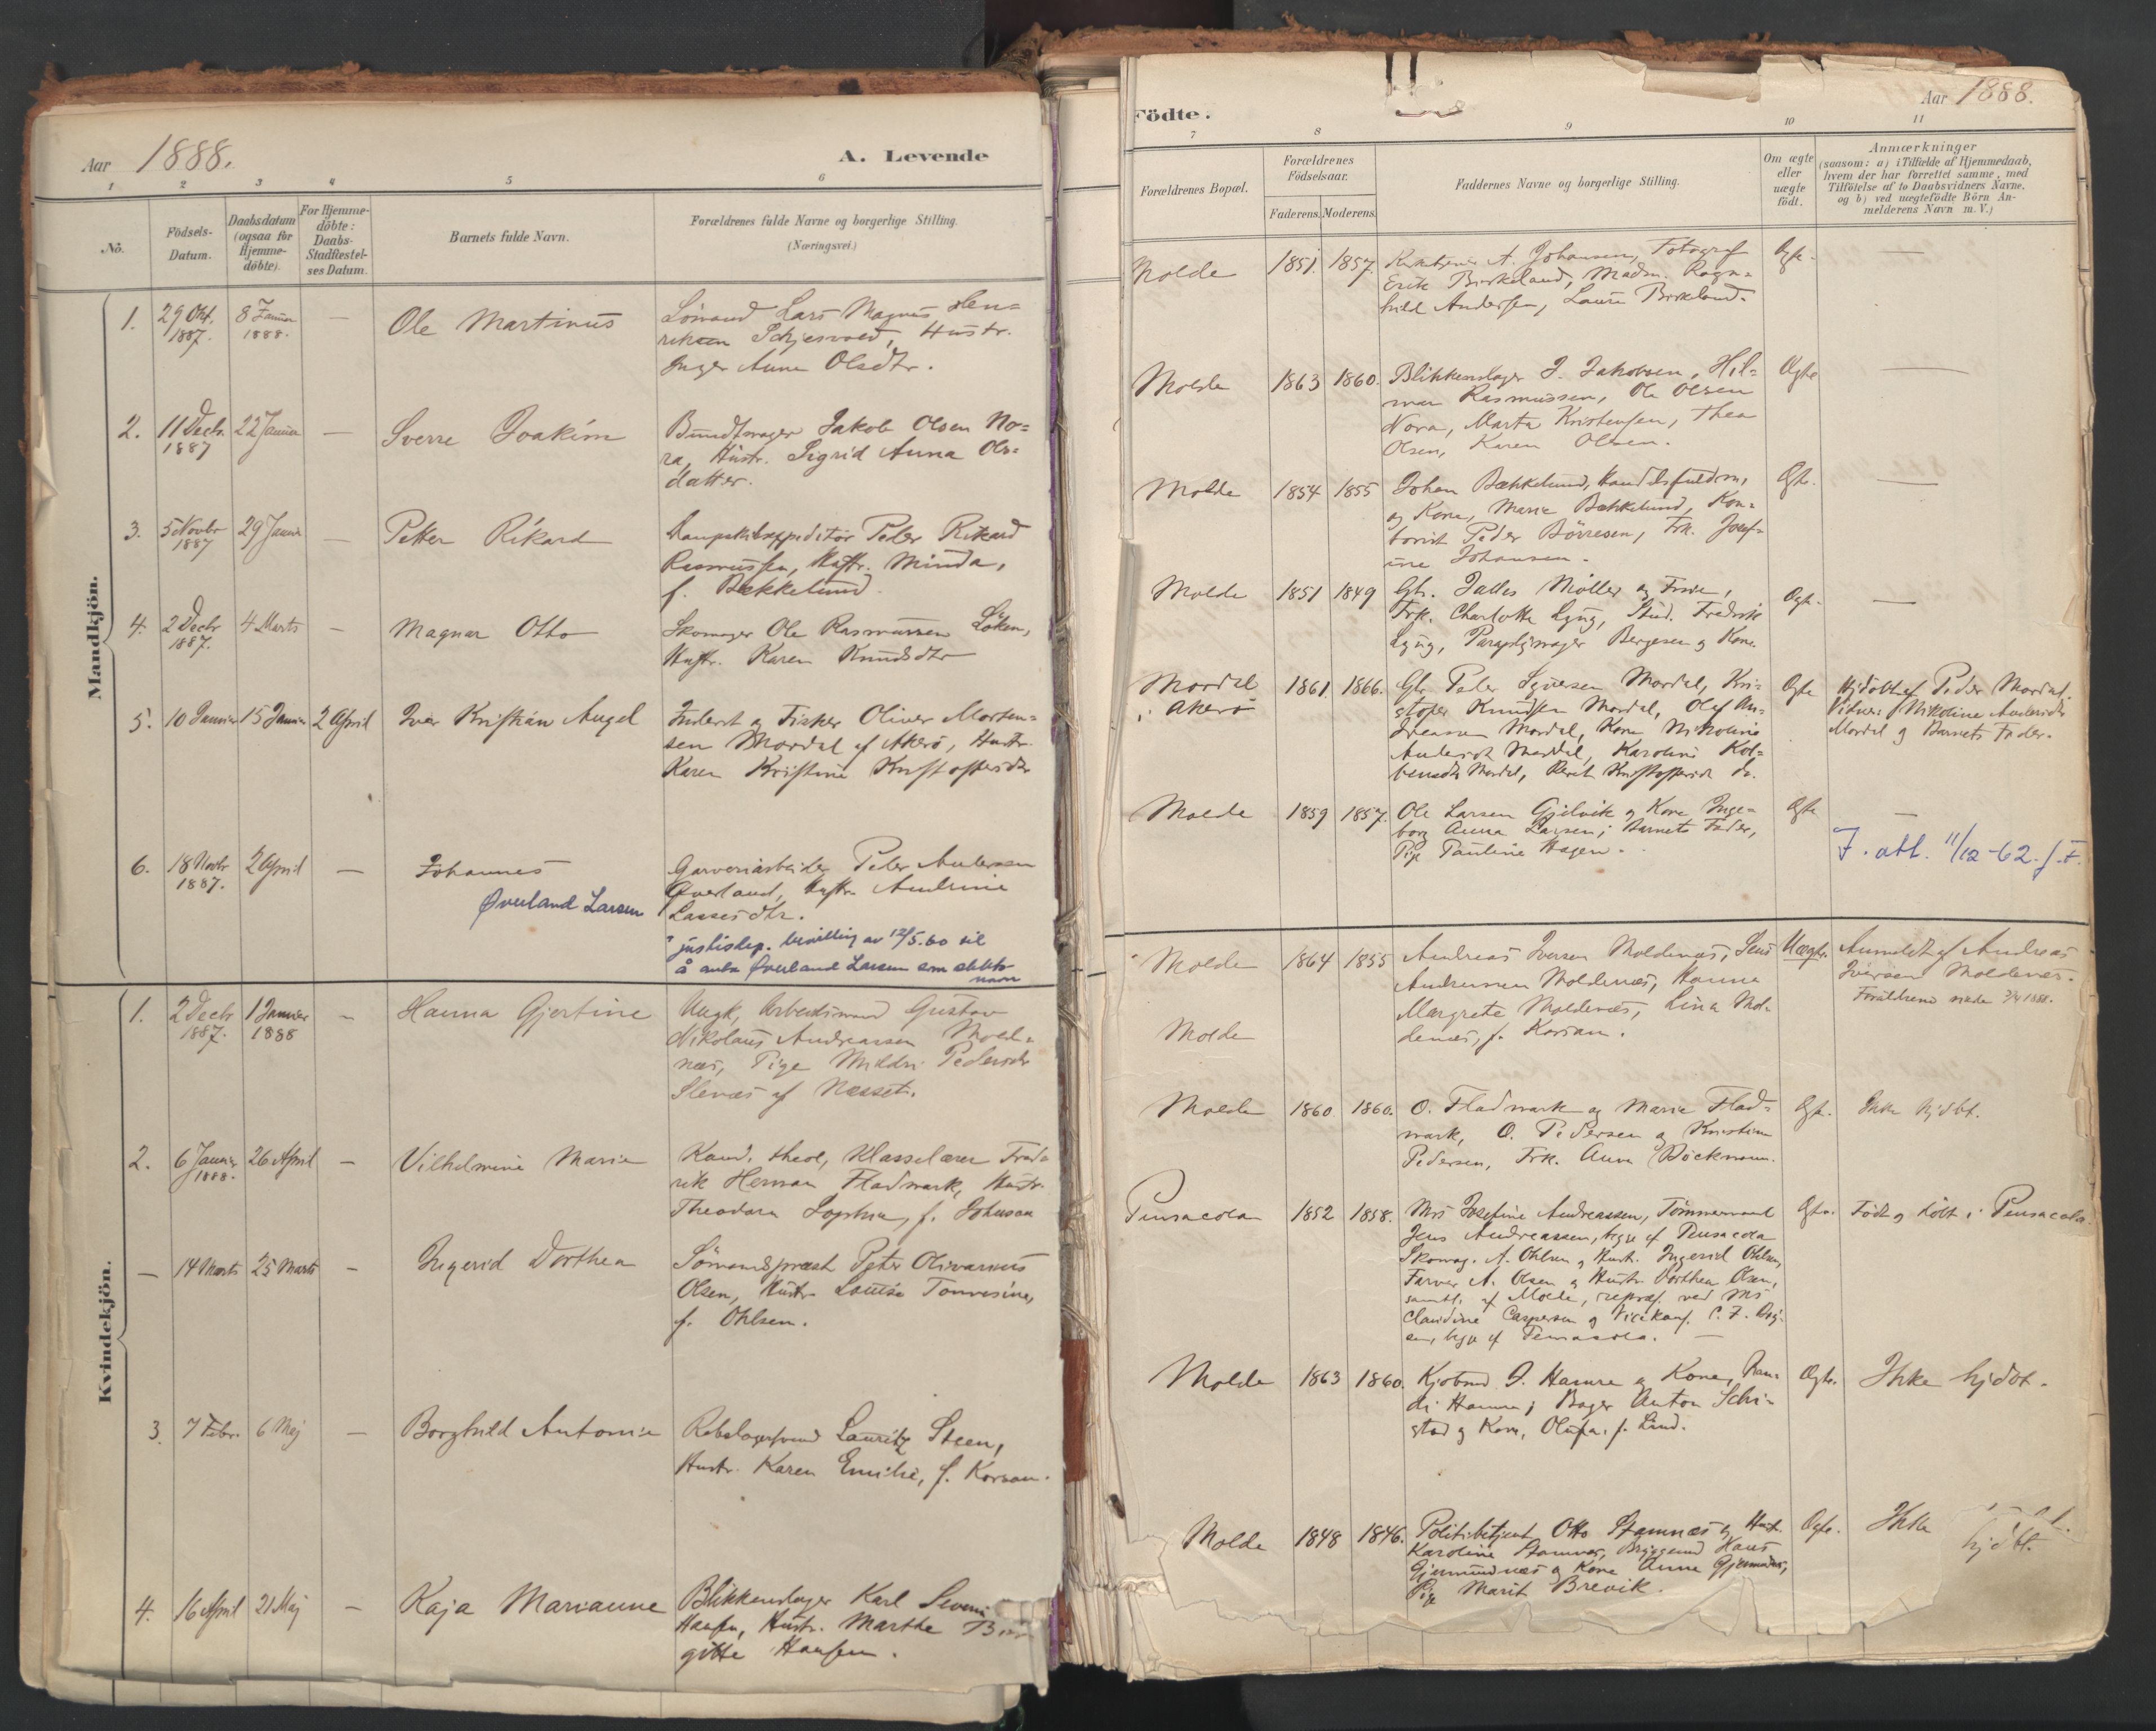 Aar 1888.
A. Levende
1 2 3 4 5 6
No.
Födsels-
Datum.
Daabsdatum
(ogsaa for
Hjemme-
döbte).
For Hjemme-
döbte:
Daabs-
Stadfæstel-
ses Datum.
Barnets fulde Navn.
Forældrenes fulde Navne og borgerlige Stilling.
(Næringsvei.)
Mandkjön.
1. 29 Okt. 8 Januar — Ole Martinus
1887. 1888.
Lars Magnus Hen=
riksen Hustr.
Inger Anna Olsdtr.
2. 11 Decbr. 22 Januar — Sverre Joakim
1887
Bundtmager Jakob Olsen No=
ra, Hustr. Sigrid Anna Ols=
datter.
3. 5 Novbr 29 Januar — Petter Rikard
1887
Peter Rikard
Rasmussen, Hustr. Minda,
f. Bækkelund.
4. 2 Decbr 4 Marts — Magnar Otto
1887.
Skomager Ole Rasmussen Løken,
Hustr. Karen Knudsdtr
5. 10 Januar 15 Januar 2 April Iver Kristian Angel
Inderst og Fisker Oliver Morten=
sen Mordal af Akerø, Hustr.
Karen Kristine Kristoffersdtr
6. 18 Novbr 2 April — Johannes
1887.
Øverland Larsen
Garveriarbeider Peder Andersen
Øverland, Hustr. Andrine
Lassesdtr.
justisdep. bevilling av 12/5.60 til
å anta Øverland Larsen som slekts-
navn
Kvindekjön.
1. 2 Decbr 1 Januar — Hanna Gjertine
1887. 1888
Ungk. Arbeidsmand Gustav
Nikolaus Andreassen Mold=
næs, Pige Mildri Pedersdtr
Slenæs af Nesset.
2. 6 Januar 26 April — Vilhelmine Marie
1888.
Kand. theol, Klasselærer Fred=
rik Herman Fladmark, Hustr.
Theodora Sophia, f. Johnson
— 14 Marts 25 Marts — Ingerid Dorthea
Sømandsprest Peter Olivarius
Olsen, Hustr. Louise Tonresine,
f. Ohlsen.
3. 7 Febr. 6 Maj — Borghild Antonie
Rebslagersvend Lauritz Steen,
Hustr. Karen Emilie, f. Korsan.
4. 16 April 21 Maj — Kaja Marianne
Blikkenslager Karl
Hansen, Hustr. Marthe
gitte Hansen.
Födte.
Aar 1888.
7 8 9 10 11
Forældrenes Bopæl.
Forældrenes
Födselsaar.
Faderens. Moderens.
Faddernes Navne og borgerlige Stilling.
Om ægte
eller
uægte
födt.
Anmærkninger
(saasom: a) i Tilfælde af Hjemmedaab,
hvem der har forrettet samme, med
Tilföielse af to Daabsvidners Navne.
og b) ved uægtefödte Börn An-
melderens Navn m. V.)
Molde 1851. 1857. A. Johansen, Fotograf Ægte. —
Erik Birkeland, Madm. Ragn=
hild Andersen, Laura Birkeland.
Molde 1863 1860. Blikkenslager J. Jakobsen, Hil= Ægte —
mar Rasmussen, Ole Olsen
Nora, Marta Kristensen, Thea
Olsen, Karen Olsen.
Molde 1854 1855 Johan Bækkelund, Handelsfuldm, Ægte. —
og Kone, Marie Bækkelund, Kon=
torist Peder Börresen, Frk. Josef=
ine Johansen.
Molde 1851 1849 Gbr. Møller og Frue, Ægte. —
Frk. Charlotte Lyng, Stud. Fredrik
Lyng, Paraplymager Bergesen og Kone.
Mordal 1861. 1866. Gbr. Peder Syversen Mordal, Kri= Ægte Hjdöbt af Peder Mordal.
i Akerø
stofer Knudsen Mordal, Olaf An=
dreasen Mordal, Kone Nikoline
Andersdt Mordal, Karoline Kol=
bensdtr Mordal, Berit Kristoffersdt do.
Vidner: Nikoline Andersdtr
Mordal og Barnets Fader.
Molde 1859 1857. Ole Larsen Gjelvik og Kone Inge= Ægte —
borg Anna Larsen; Barnets Fader,
Pige Pauline Hagen.
F. att. 11/12-62. J.F.
Molde 1864 1855 Andreas Iversen Moldenæs, Jens Uægte. Anmeldt af Andreas
Andreassen Moldenæs, Hanna
Margrete Moldenæs, Lina Mol=
denæs, f. Korsan.
Iversen Moldenæs.
Forældrene 1888.
Molde
Molde 1860 1860. O. Fladmark og Marie Flad= Ægte. Ikke hjdbt.
mark, O. Pedersen og Kristine
Pedersen, Frk. Anna Böckmann.
Pensacola 1852 1858. Mrs Josefine Andreassen, Tömmermand Ægte. Födt og döbt i Pensacola.
Jens Andreassen, begge af Pensacola
Skomag. A. Ohlsen og Hustr. Ingerid Ohlsen,
Farver A. Olsen og Hustr. Dorthea Olsen,
samtl. af Molde, repræs. ved Mrs
Claudine Caspersen og Vicekons. C. F.
sen, begge af Pensacola. —
Molde 1863 1860. Kjøbmd J. Hamre og Kone, Ran= Ægte. Ikke hjdbt.
di Hamre; Bager Anton Schi=
stad og Kone, Olufa, f. Lind.
Molde 1848 1846. Politibetjent Otto Stamnæs og Hust. Ægte. Ikke hjdbt.
Karoline Stamnæs, Hans
Gjermundnæs og Kone Anne Gjermundnæs,
Pige Marit Brevik.